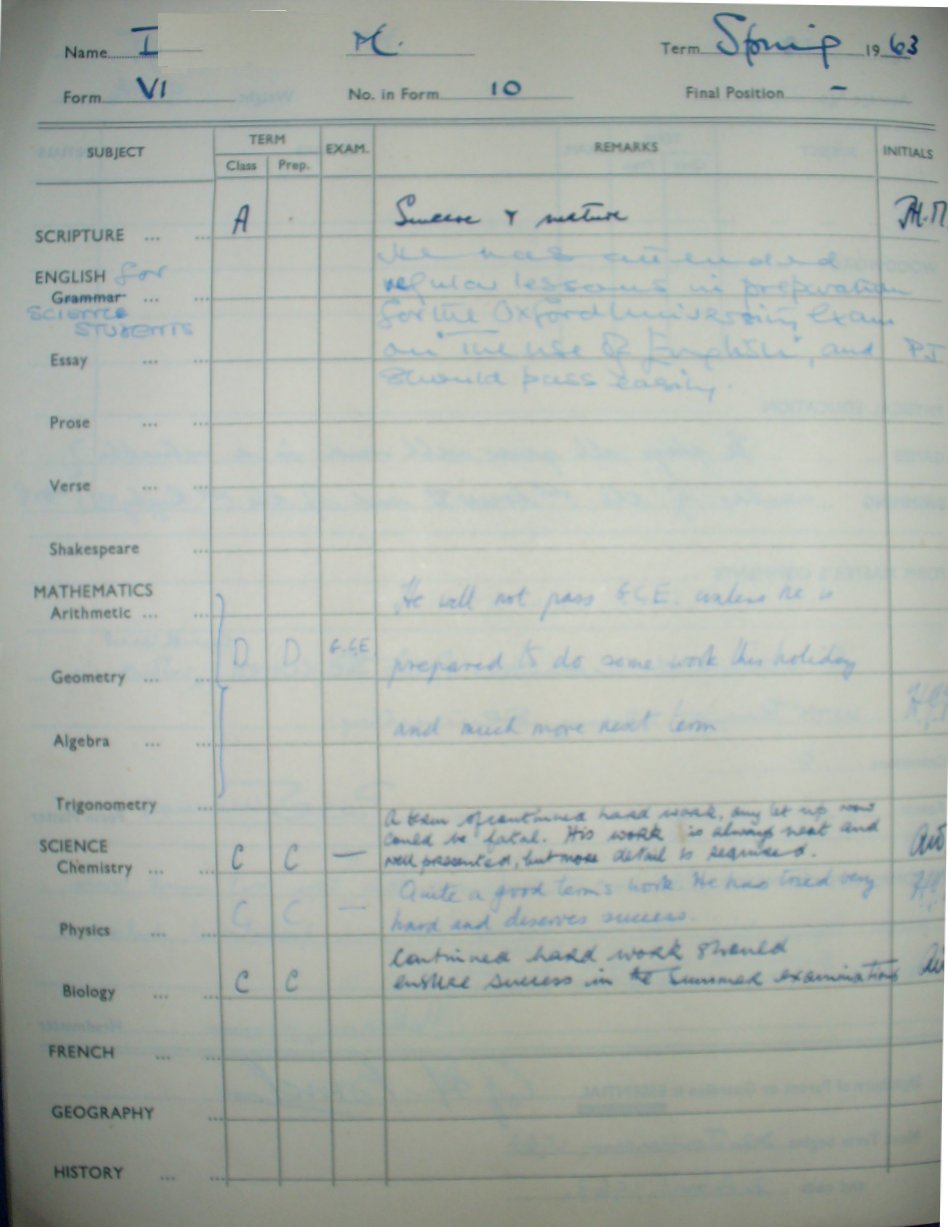 Name I M. Term Spring 1963
Form VI No. in Form 10 Final Position -
SUBJECT TERM EXAM. REMARKS INITIALS
Class Prep.
SCRIPTURE ... ... A . Sincere & mature
ENGLISH for He has attended
Grammar ... ... regular lessons in preparation
SCIENCE for the Oxford University Exam
STUDENTS
Essay ... ... on "The use of English", and P.J
should pass easily.
Prose ... ...
Verse ... ...
Shakespeare ...
MATHEMATICS He will not pass G.C.E. unless he is
Arithmetic ... ...
D D G.C.E prepared to do some work this holiday
Geometry ... ...
and much more next term
Algebra ... ...
Trigonometry ... A term of continued hard work, any let up now
SCIENCE could be fatal. His work is always neat and
Chemistry ... ... C C — well presented, but more detail is required.
C C — Quite a good term's work. He has tried very
Physics ... ... hard and deserves success.
Continued hard work should
Biology ... ... C C ensure success in the summer examinations
FRENCH ... ...
GEOGRAPHY ...
HISTORY ... ...